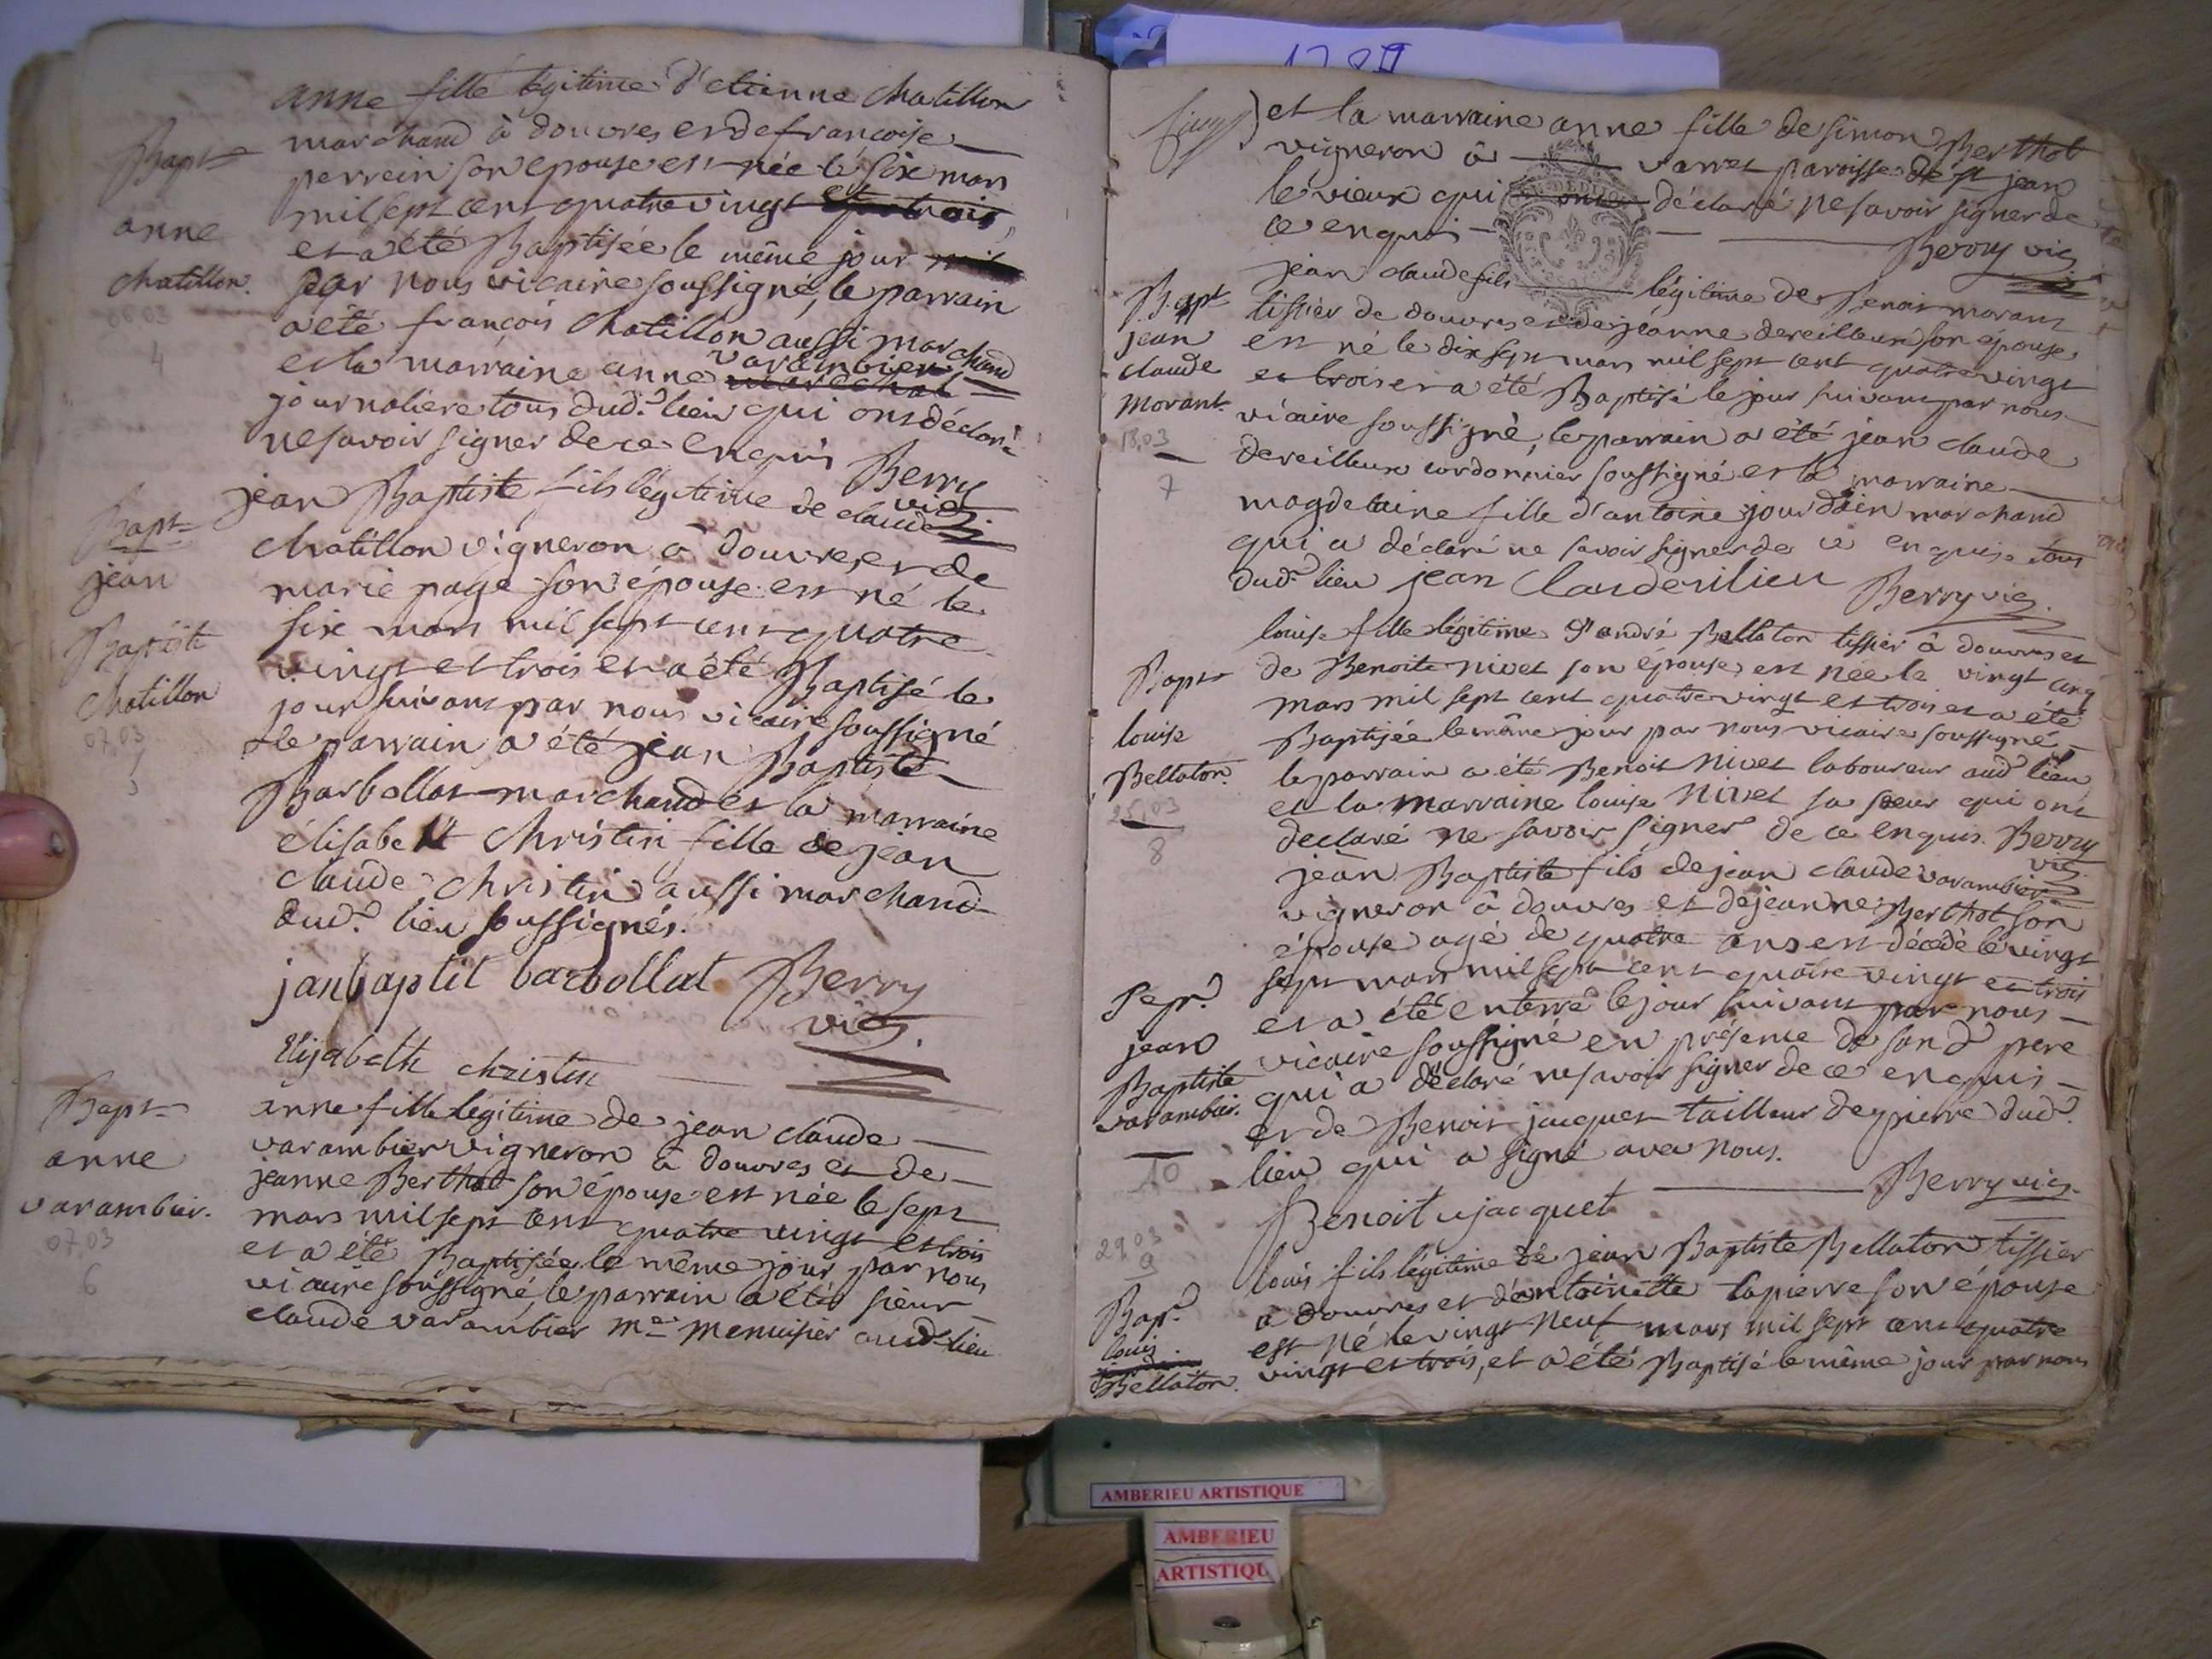 anne fille légitime d'etienne chatillon
marchand à douvres et de francoise
perrein son epouse est née le six mars
mil sept cent quatre vingt et trois
et a été Baptisée le même jour
par nous vicaire soussigné, le parrain
a été françois chatillon aussi marchand
et la marraine anne varambier
journaliere tous dud.t lieu qui ont déclaré
ne savoir signer de ce enquis Berry
vic.
Bapt
anne
chatillon.
06 03
4
jean Baptiste fils légitime de claude
chatillon vigneron à douvres et de
marie page son épouse est né le
six mars mil sept cent quatre
vingt et trois et a été Baptisé le
jour suivant par nous vicaire soussigné
le parrain a été jean Baptiste
Barbollat marchand et la marraine
élisabett christin fille de jean
claude christin aussi marchand
dud.t lieu soussignés.
janbaptit barbollat Berry
vic.
Elisabeth christin
Bapt
jean
Baptiste
chatillon
07,03
5
anne fille légitime de jean claude
varambier vigneron à douvres et de
jeanne Berthot son épouse est née le sept
mars mil sept cent quatre vingt et trois
et a été Baptisée le même jour par nous
vicaire soussigné, le parrain a été sieur
claude varambier me menuisier aud lieu
Bapt
anne
varambier.
07,03
6
1783
et la marraine anne fille de simon Berthot
vigneron à varet paroisse de st jean
le vieux qui ont déclaré ne savoir signer de
ce enquis
Berry vic
jean claude fils légitime de Benoit morant
tissier de douvres et de jeanne dereilleux son épouse
est né le dix sept mars mil sept cent quatre vingt
et trois et a été Baptisé le jour suivant par nous
vicaire soussigné, le parrain a été jean claude
dereilleux cordonnier soussigné et la marraine
magdelaine fille d'antoine jourdain marchand
qui a déclaré ne savoir signer de ce enquise tous
dud.t lieu jean Clauderilieu Berry vic.
Bapt
jean
claude
morant.
18,03
7
louise fille légitime d'andré Bellaton tissier à douvres et
de Benoite nivet son épouse est née le vingt cinq
mars mil sept cent quatre vingt et trois et a été
Baptisée le même jour par nous vicaire soussigné,
le parrain a été Benoit nivet laboureur aud lieu
et la marraine louise nivet sa soeur qui ont
declaré ne savoir signer de ce enquis. Berry
vic.
Bapt
louise
Bellaton.
25,03
8
jean Baptiste fils de jean claude varambier
vigneron à douvres et de jeanne Berthot son
épouse agé de quatre ans est décédé le vingt
sept mars mil sept cent quatre vingt et trois
et a été enterré le jour suivant par nous
vicaire soussigné en présence de son d père
qui a déclaré ne savoir signer de ce enquis
et de Benoit jacquet tailleur de pierre dud.t
lieu qui a signé avec nous.
Berry vic.
Benoit jacquet
Sep.r
jean
Baptiste
varambier.
10
louis fils légitime de jean Baptiste Bellaton tissier
à douvres et d'antoinette lapierre son épouse
est né le vingt neuf mars mil sept cent quatre
vingt et trois, et a été Baptisé le même jour par nous
29,03
9
Bap.t
louis
Bellaton.
AMBERIEU ARTISTIQUE
AMBERIEU
ARTISTIQU